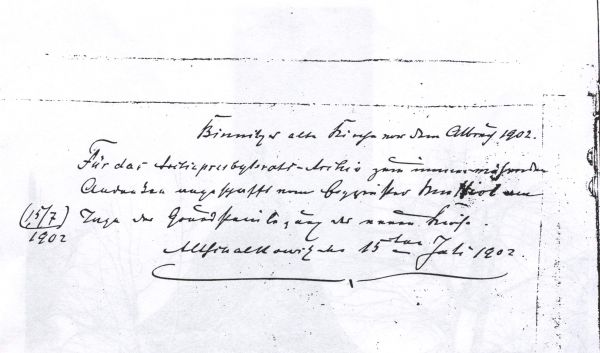 Binnitzer alte Kirche vor dem Abbruch 1902.
Für das Archipresbyterats-Archiv zum immerwährenden
Andenken angeschafft vom Erzpriester am
(15/7) 1902 Tage der Grundsteinlegung der neuen Kirche.
Altschalkowitz den 15ten Juli 1902.